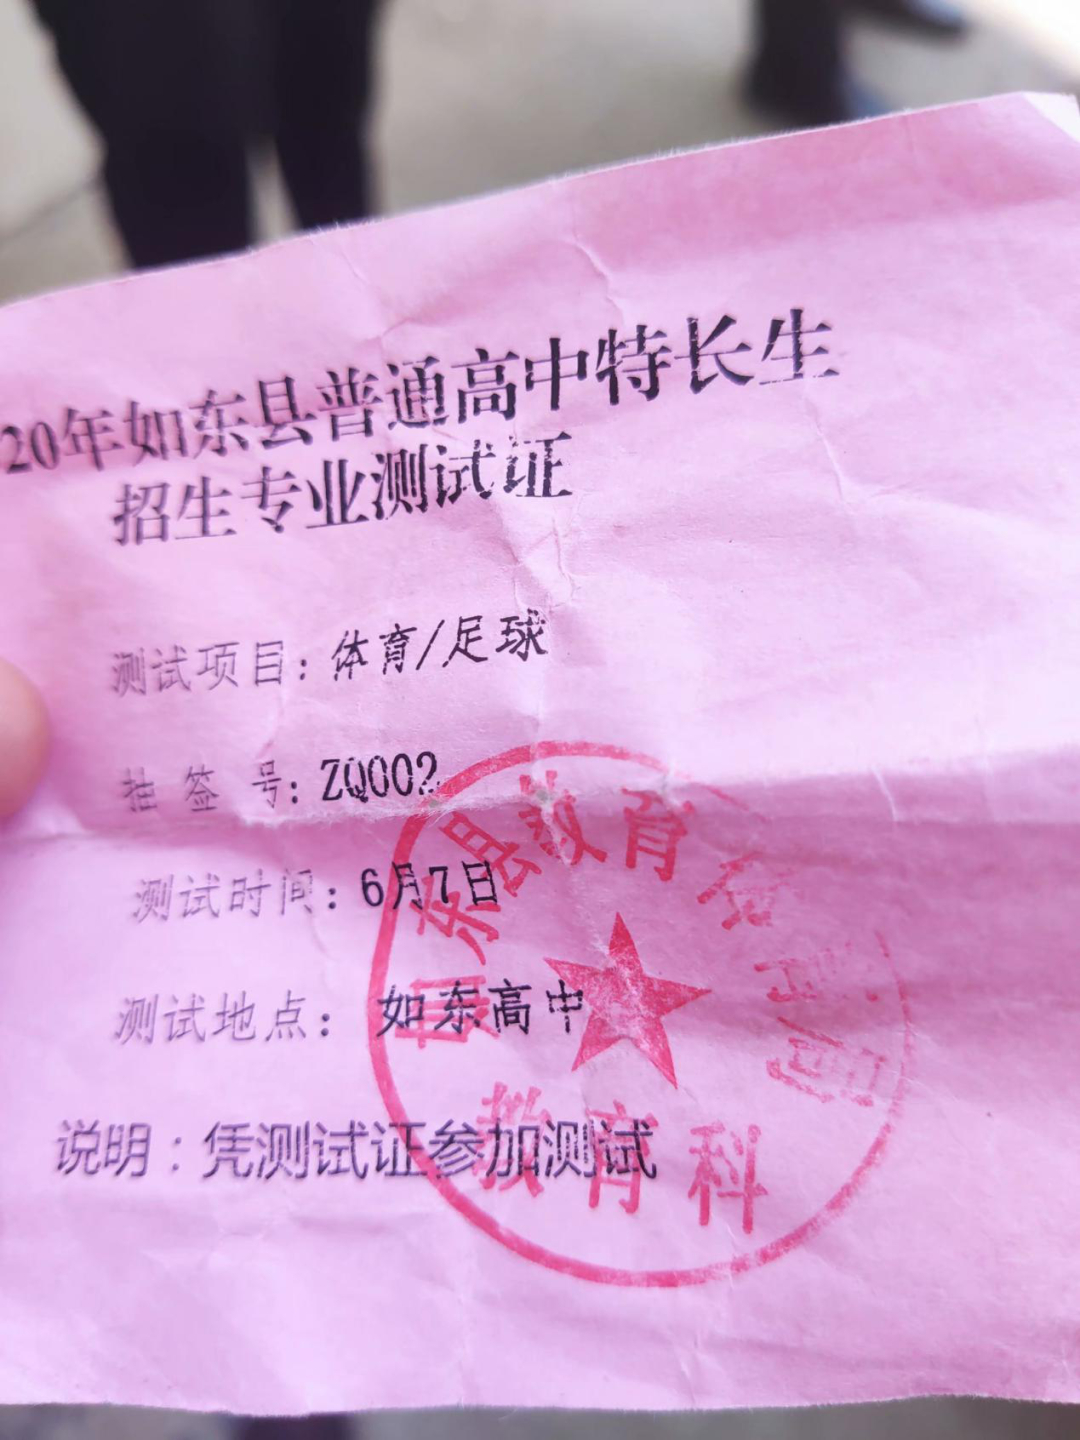 20年如东县普通高中特长生
招生专业测试证
测试项目：体育/足球
抽签号：ZQ002
测试时间：6月7日
测试地点：如东高中
说明：凭测试证参加测试
如东县教育体育局
教育科